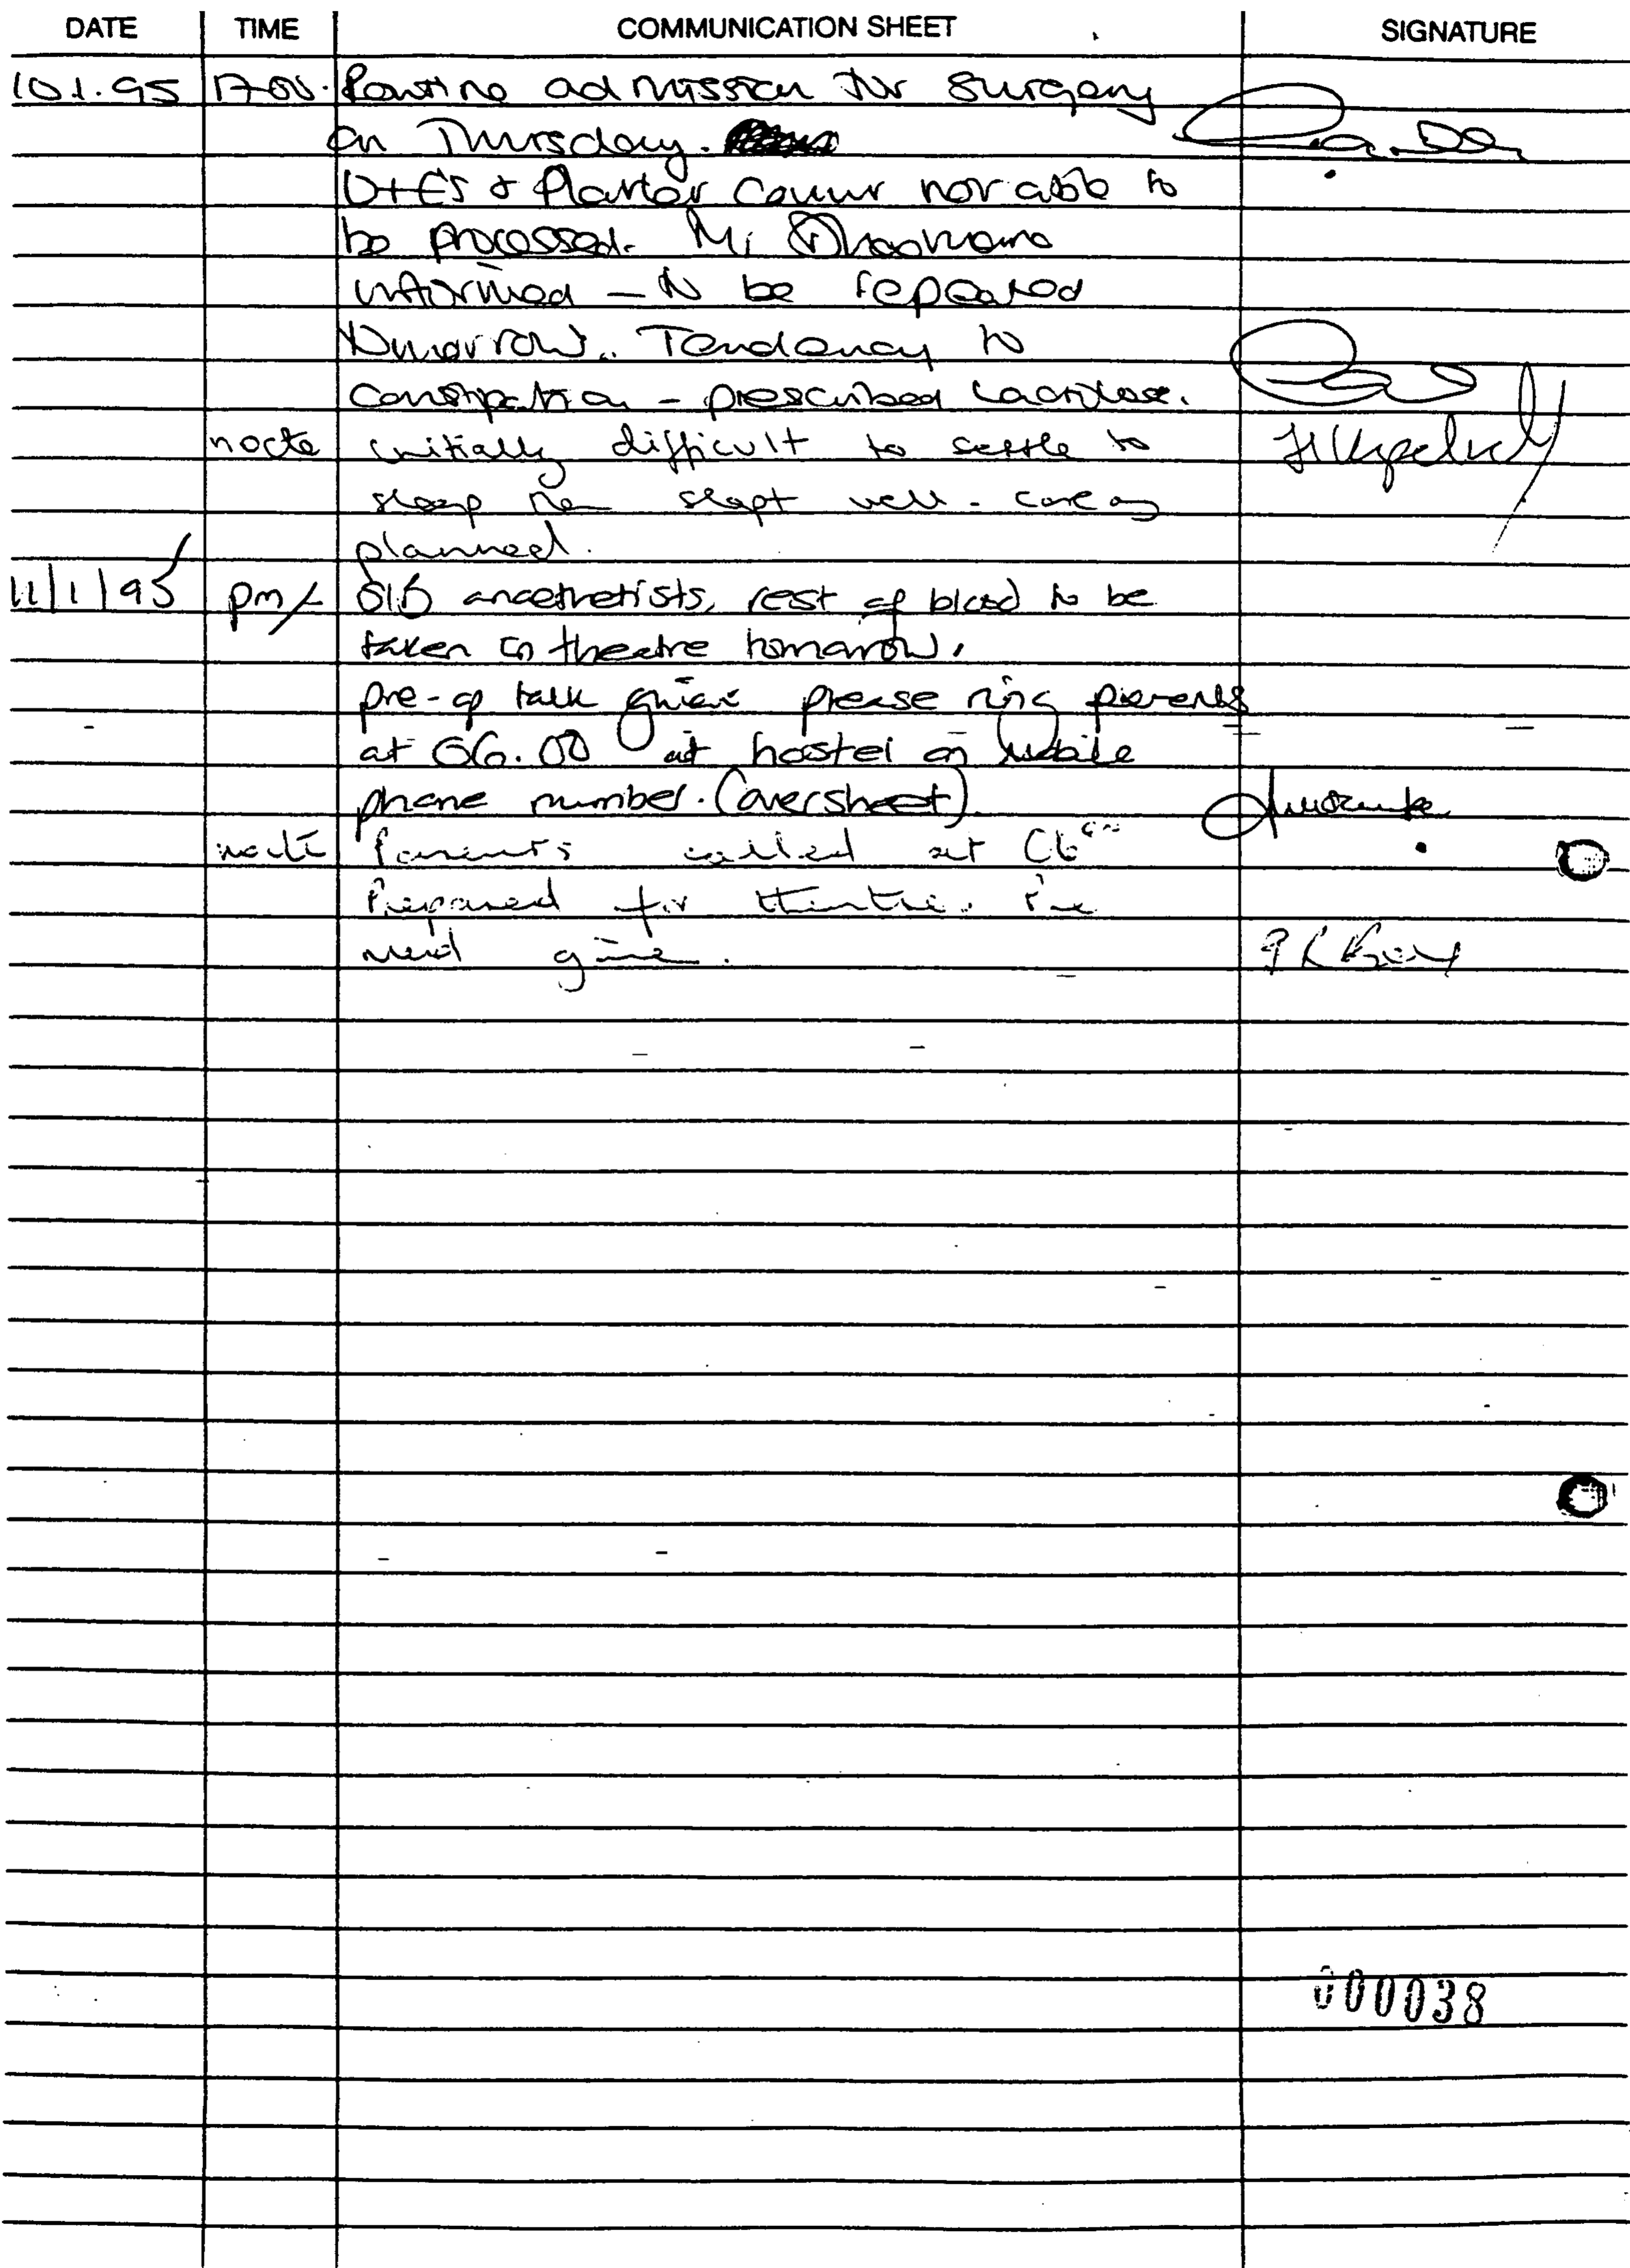 DATE TIME COMMUNICATION SHEET SIGNATURE
10.1.95 17.00. Routine admission for surgery
on Thursday.
U+E's & Platelet count not able to
be processed. Mr Dhasmana
informed – to be repeated
tomorrow. Tendency to
constipation – prescribed Lactulose.
nocte initially difficult to settle to
sleep then slept well - care as
planned.
11/1/95 pm/ S/B anaesthetists, rest of blood to be
taken in theatre tomorrow.
pre-op talk given please ring parents
at 06.00 at hostel on mobile
phone number. (oversheet).
nocte Parents called at 06 00
Prepared for theatre. Pre
med given.
000038